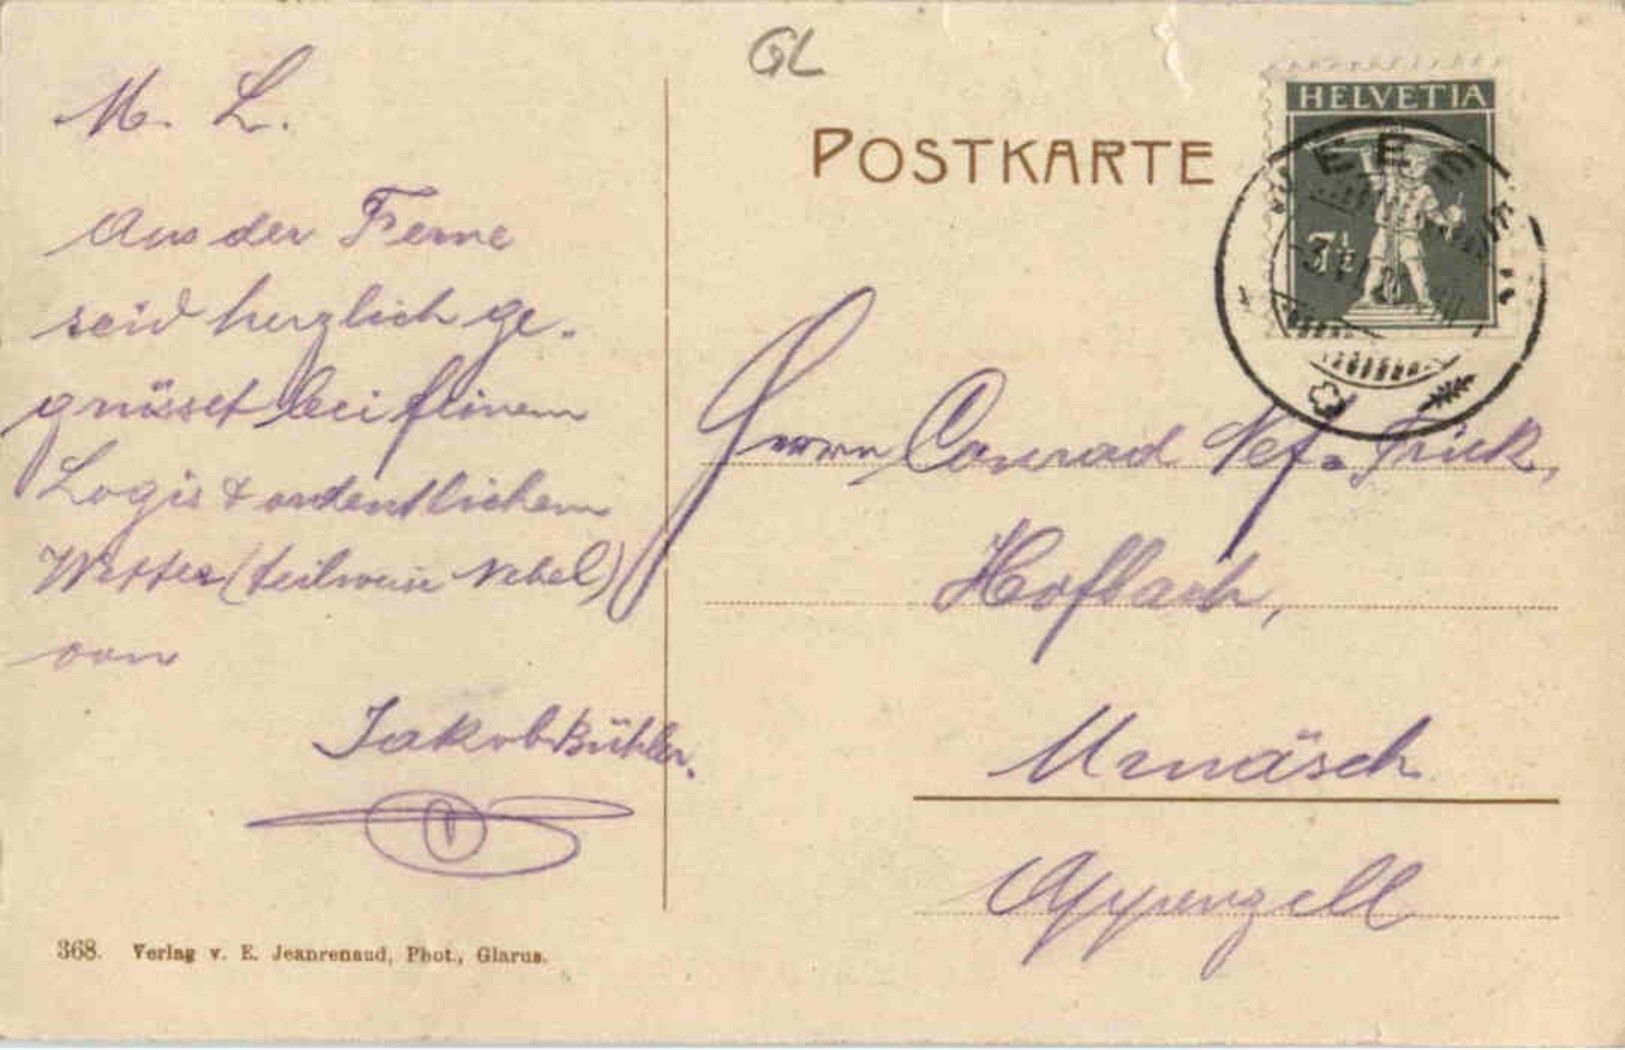 GL
POSTKARTE
HELVETIA
7½
M. L.
Aus der Ferne
seid herzlich ge-
grüsset bei flinem
Logis & ordentlichem
Wetter (teilweise Nebel)
von
Jakob Bühler.
Herrn Conrad Nef-Frick,
Hofbach,
Urnäsch
Appenzell
368. Verlag v. E. Jeanrenaud, Phot., Glarus.